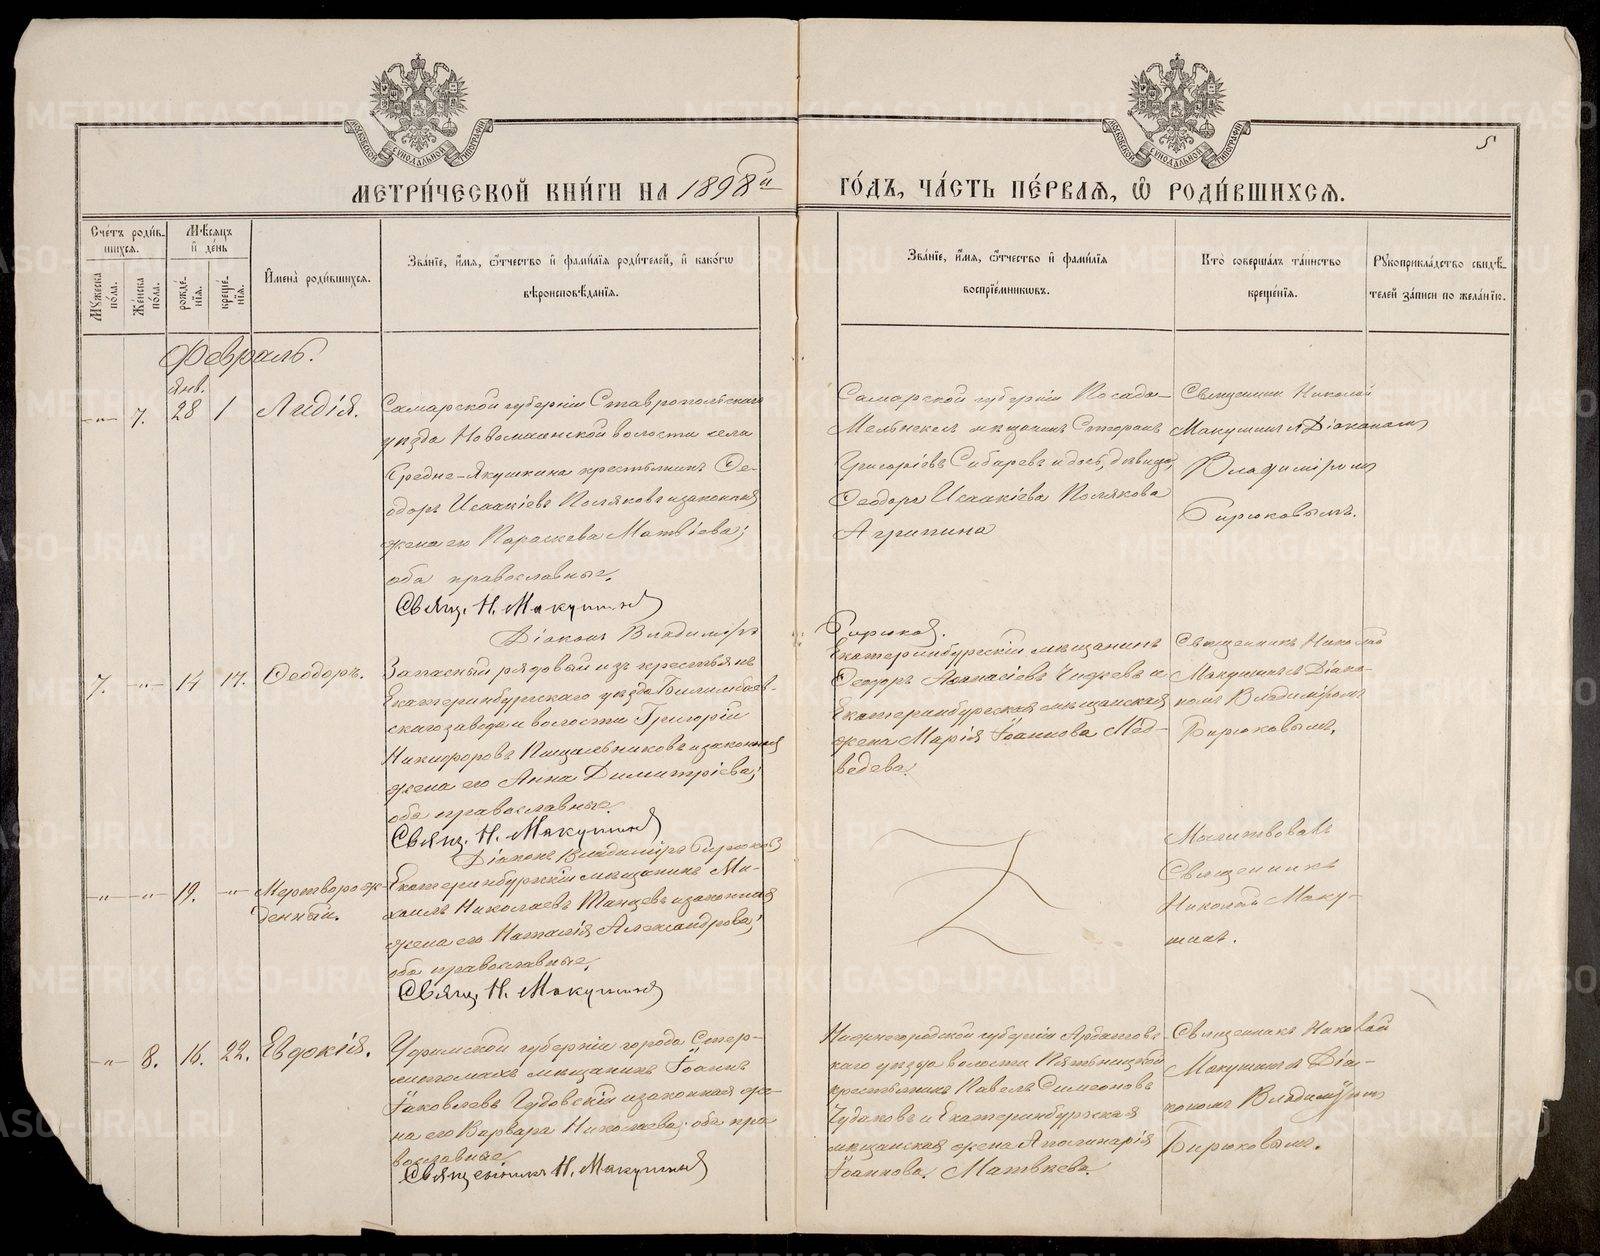 МЕТРИ́ЧЕСКОЙ КНИ́ГИ НА 1898й ГО́ДЪ, ЧА́СТЬ ПЕ́РВАѦ, Ѡ҆ РОДИ́ВШИХСѦ.
5
Сче́тъ роди́в-
шихсѧ.
Мꙋ́жеска по́ла.
Же́нска по́ла.
Мѣ́сѧцъ и҆ де́нь
рожде́-
нїѧ.
креще́-
нїѧ.
И҆мена̀ роди́вшихсѧ.
Зва́нїе, и҆́мѧ, ѻ҆́тчество и҆ фами́лїѧ роди́телей, и҆ како́гѡ
вѣроисповѣ́данїѧ.
Зва́нїе, и҆́мѧ, ѻ҆́тчество и҆ фами́лїѧ
воспрїе́мникѡвъ.
Кто̀ соверша́лъ та́инство
креще́нїѧ.
Рꙋкоприкла́дство свидѣ́-
телей за́писи по жела́нїю.
Февраль.
Янв.
-"- 7. 28 1 Лидія.
Самарской губерніи Ставропольскаго
уѣзда Новомаинской волости села
Средне-Якушкина крестьянинъ Ѳе-
одоръ Исаакіевъ Поляковъ и законная
жена его Параскева Матвіева;
оба православные.
Свящ. Н. Макушинъ
Діаконъ Владиміръ
Бирюков.
Самарской губерніи Посада
Мелекесъ мѣщанинъ Стефанъ
Григорьевъ Сибиревъ и дѣвица,
Ѳеодора Исаакіева Полякова
Агрипина
Священник Николай
Макушинъ с Діакономъ
Владиміромъ
Бирюковымъ.
7. -"- 14 17. Ѳеодоръ.
Запасный рядовый изъ крестьянъ
Екатеринбургскаго уѣзда Билимбаев-
скаго завода и волости Григорій
Никифоровъ Пищальниковъ и законная
жена его Анна Димитріева;
оба православные
Свящ. Н. Макушинъ
Діаконъ Владиміръ Бирюков
Екатеринбургскій мѣщанинъ
Ѳеодоръ Аѳанасіевъ и
Екатеринбургская мѣщанская
жена Марія Іоаннова Мед-
ведева.
Священникъ Николай
Макушинъ с Діако-
номъ Владиміромъ
Бирюковымъ.
-"- -"- 19. -"- Мертворож-
денный.
Екатеринбургскій мѣщанинъ Ми-
хаилъ Николаевъ и законная
жена его Наталія Александрова;
оба православные.
Свящ. Н. Макушинъ
Молитвовалъ
Священникъ
Николай Маку-
шинъ.
-"- 8. 16. 22. Евдокія.
Уфимской губерніи города Стер-
литомакъ мѣщанинъ Іоаннъ
Іаковлевъ Чудовскій и законная же-
на его Варвара Николаева; оба пра
вославные
Священникъ Н. Макушинъ
Нижегородской губерніи Ардатовс
каго уѣзда волости
крестьянинъ Павелъ Симеоновъ
Чудаковъ и Екатеринбургская
мѣщанская жена Аполинарія
Іоаннова Матвѣева.
Священникъ Николай
Макушинъ с Діа-
кономъ Владиміромъ
Бирюковымъ.
METRIKI.GASO-URAL.RU